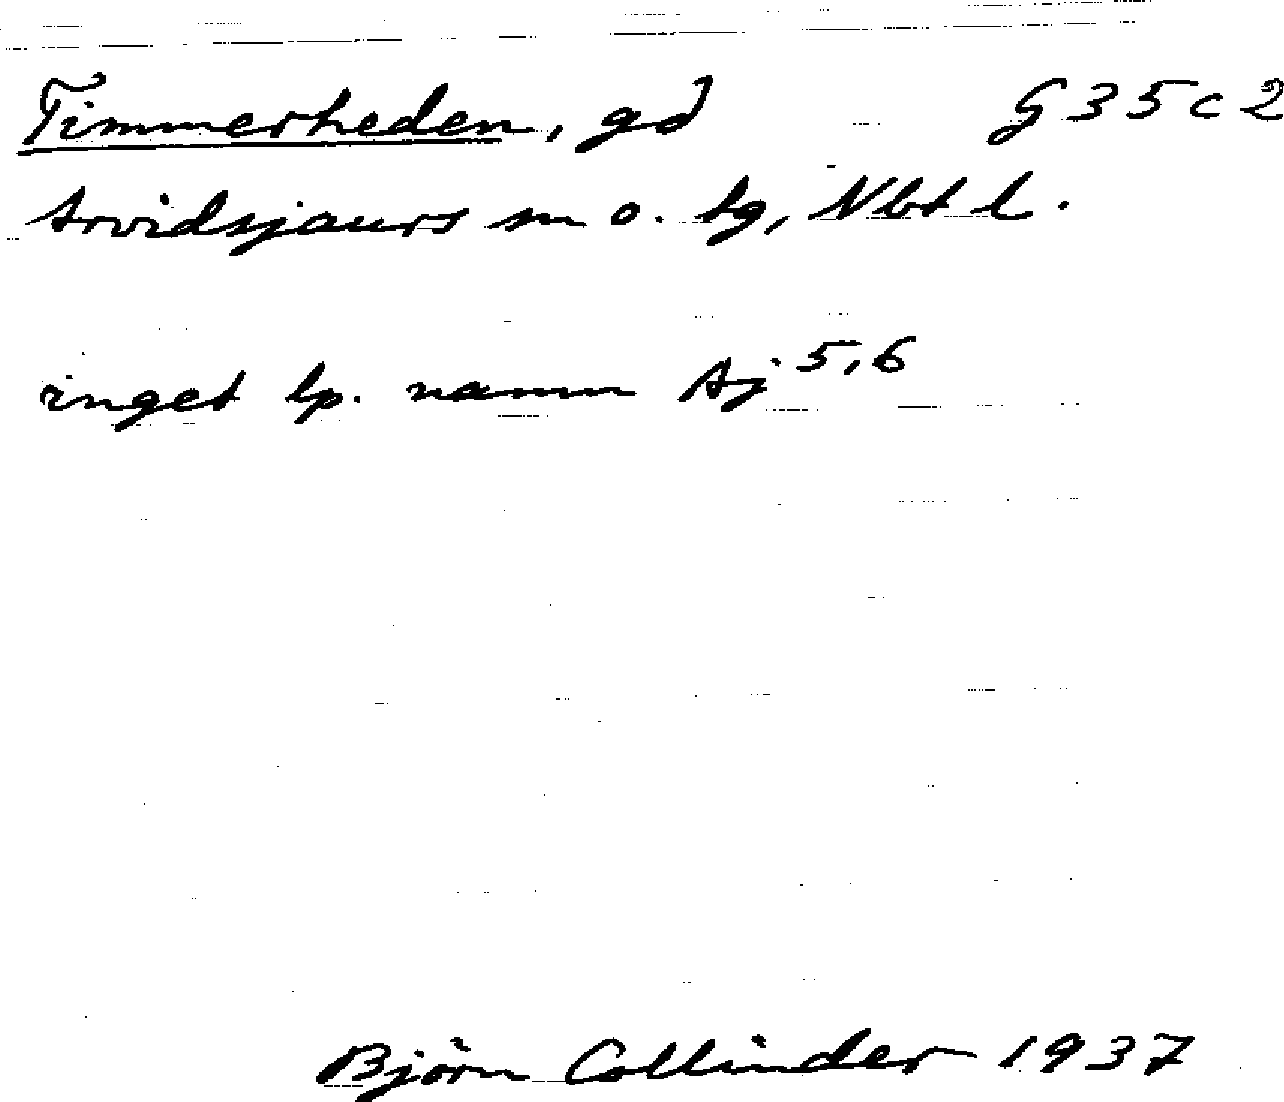 Timmerheden, gd G 35 c 2
Arvidsjaurs sn o. tg, Nbt l.
inget lp. namn Aj 5,6
Björn Collinder 1937